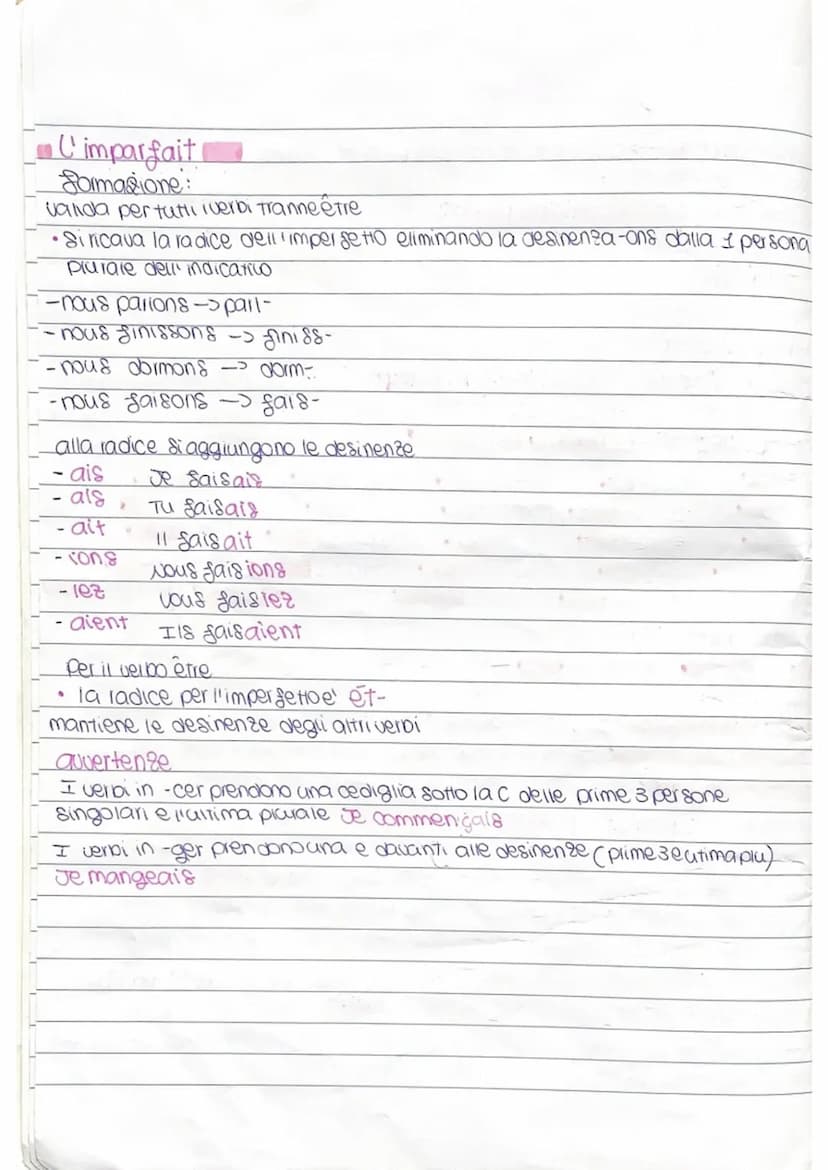 L'imparfait
formazione:
valida per tutti i verbi tranne être
• Si ricava la radice dell'imperfetto eliminando la desinenza -ons dalla 1 persona
plurale dell'indicativo
- nous parlons -> parl-
- nous finissons -> finiss-
- nous dormons -> dorm-
- nous faisons -> fais-
alla radice si aggiungono le desinenze
- ais Je faisais
- ais Tu faisais
- ait Il faisait
- ions Nous faisions
- iez Vous faisiez
- aient Ils faisaient
Per il verbo être
• la radice per l'imperfetto e' ét-
mantiene le desinenze degli altri verbi
avvertenze
I verbi in -cer prendono una cediglia sotto la c delle prime 3 persone
singolari e l'ultima plurale Je commençais
I verbi in -ger prendono una e davanti alle desinenze (prime 3 e utima plu)
Je mangeais